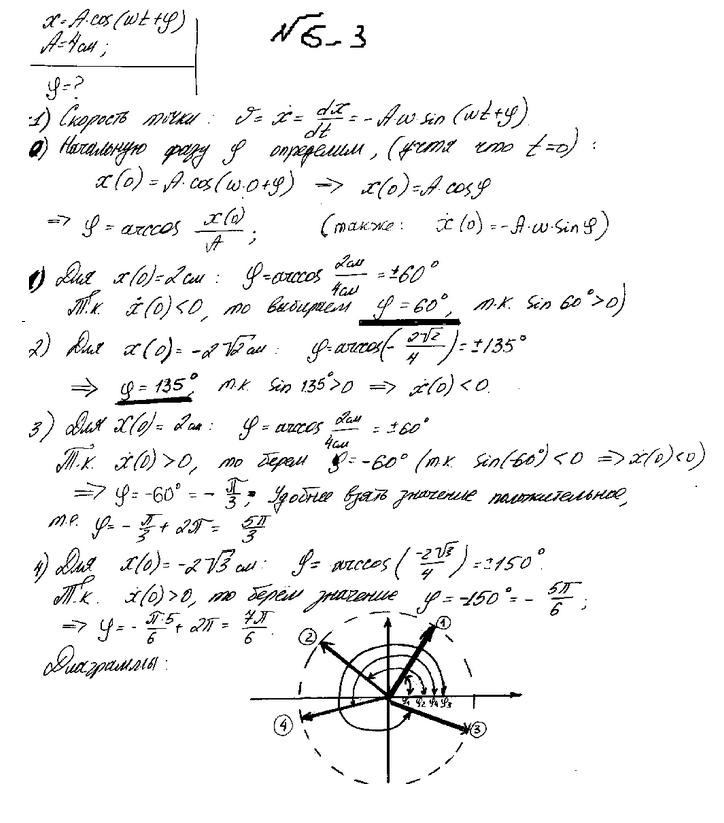 x = A·cos(ωt+φ)
A=4см;
φ=?
№6-3
1) Скорость точки: υ = ẋ = dx/dt = -Aω sin(ωt+φ)
0) Начальную фазу φ определим, (учтя что t=0):
x(0) = A·cos(ω·0+φ) ⇒ x(0) = A·cosφ
⇒ φ = arccos x(0)/A; (также: ẋ(0) = -A·ω·sinφ)
1) Для x(0)=2см: φ=arccos 2см/4см = ±60°
Т.к. ẋ(0)<0, то выбираем φ = 60°, т.к. sin 60°>0)
2) Для x(0) = -2√2см: φ=arccos(-2√2/4)=±135°
⇒ φ = 135°, т.к. sin 135°>0 ⇒ ẋ(0)<0.
3) Для x(0) = 2см: φ = arccos 2см/4см = ±60°
Т.к. ẋ(0)>0, то берем φ=-60° (т.к. sin(-60°)<0 ⇒ ẋ(0)<0)
⇒ φ = -60° = -π/3; Удобнее взять значение положительное,
т.е. φ = -π/3 + 2π = 5π/3
4) Для x(0) = -2√3см: φ = arccos(-2√3/4) = ±150°.
Т.к. ẋ(0)>0, то берём значение φ = -150° = -5π/6;
⇒ φ = -π·5/6 + 2π = 7π/6.
Диаграммы:
1
2
φ₁ φ₂ φ₄ φ₃
4
3